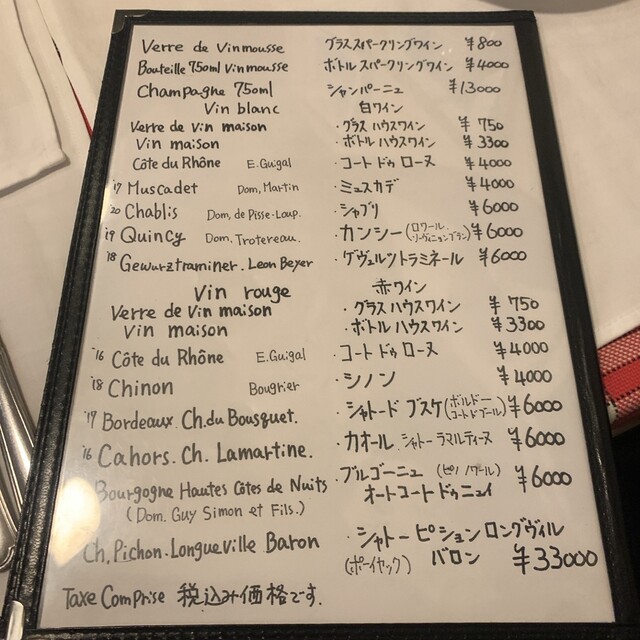 Verre de Vinmousse グラススパークリングワイン ¥800
Bouteille 750ml Vinmousse ボトルスパークリングワイン ¥4000
Champagne 750ml シャンパーニュ ¥13000
Vin blanc 白ワイン
Verre de Vin maison ・グラスハウスワイン ¥750
Vin maison ・ボトルハウスワイン ¥3300
Côte du Rhône E.Guigal ・コート ドゥ ローヌ ¥4000
'17 Muscadet Dom, Martin ・ミュスカデ ¥4000
'20 Chablis Dom, de Pisse-Loup. ・シャブリ ¥6000
'19 Quincy Dom. Trotereau. ・カンシー(ロワール.ソーヴィニョンブラン) ¥6000
'18 Gewurztraminer. Leon Beyer ・ゲヴェルツトラミネール ¥6000
Vin rouge 赤ワイン
Verre de Vin maison ・グラスハウスワイン ¥750
Vin maison ・ボトルハウスワイン ¥3300
'16 Côte du Rhône E.Guigal ・コート ドゥ ローヌ ¥4000
'18 Chinon Bougrier ・シノン ¥4000
'17 Bordeaux. Ch.du Bousquet. ・シャトード ブスケ(ボルドーコートドブール) ¥6000
'16 Cahors. Ch. Lamartine. ・カオール. シャトー ラマルティーヌ ¥6000
Bourgogne Hautes Côtes de Nuits ・ブルゴーニュ (ピノノワール) ¥6000
(Dom. Guy Simon et Fils.) オートコート ドゥニュイ
Ch. Pichon-Longueville Baron ・シャトー ピション ロングヴィル
(ポーイヤック) バロン ¥33000
Taxe Comprise 税込み価格です.